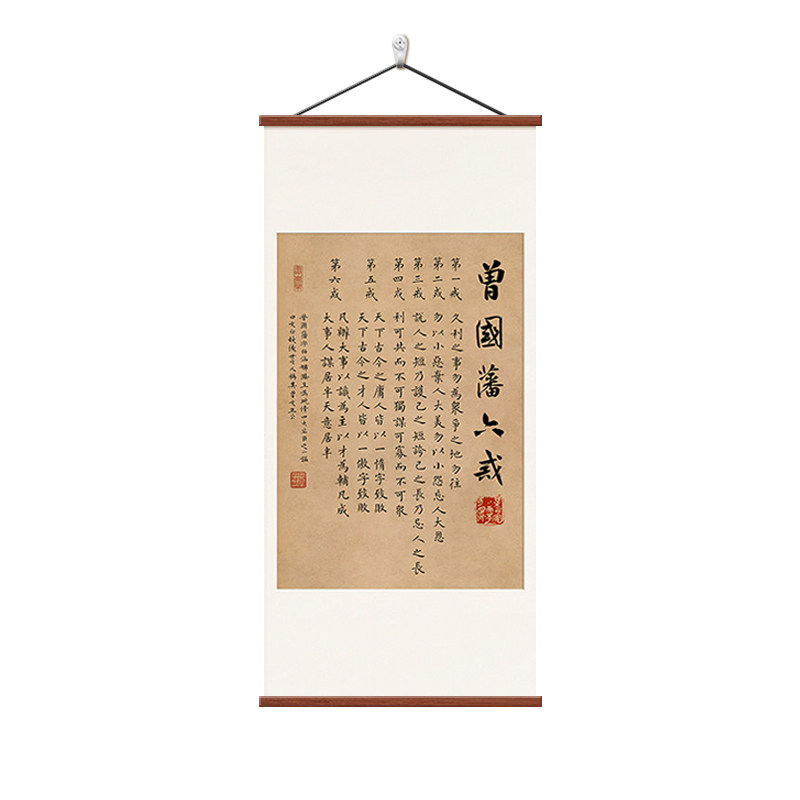 曾國藩六戒
第一戒 久利之事勿為眾爭之地勿往
第二戒 勿以小惡棄人大美勿以小怨忘人大恩
第三戒 說人之短乃護己之短誇己之長乃忌人之長
第四戒 利可共而不可獨謀可寡而不可眾
第五戒 天下古今之庸人皆以一惰字致敗
天下古今之才人皆以一傲字致敗
第六戒 凡辦大事以識為主以才為輔凡成
大事人謀居半天意居半